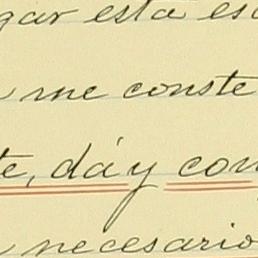 gar esta es
me conste
te, dá y con
necesario